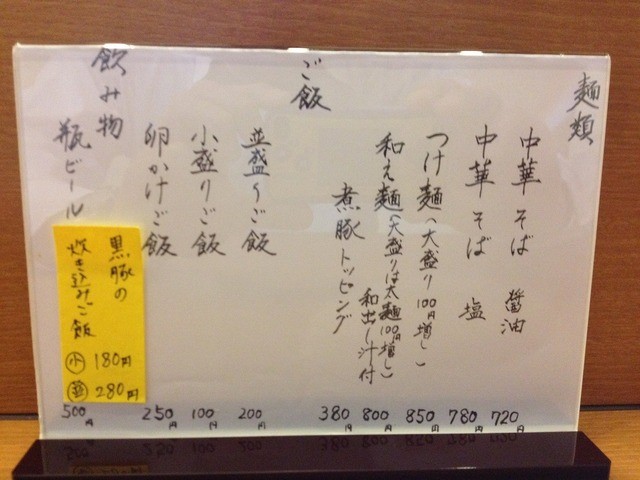 麺類
中華そば 醤油 720円
中華そば 塩 780円
つけ麺(大盛り100円増し) 850円
和え麺(大盛りは太麺100円増し) 800円
和出し汁付
煮豚トッピング 380円
ご飯
並盛りご飯 200円
小盛りご飯 100円
卵かけご飯 250円
飲み物
瓶ビール 500円
黒豚の
炊き込みご飯
小 180円
並 280円